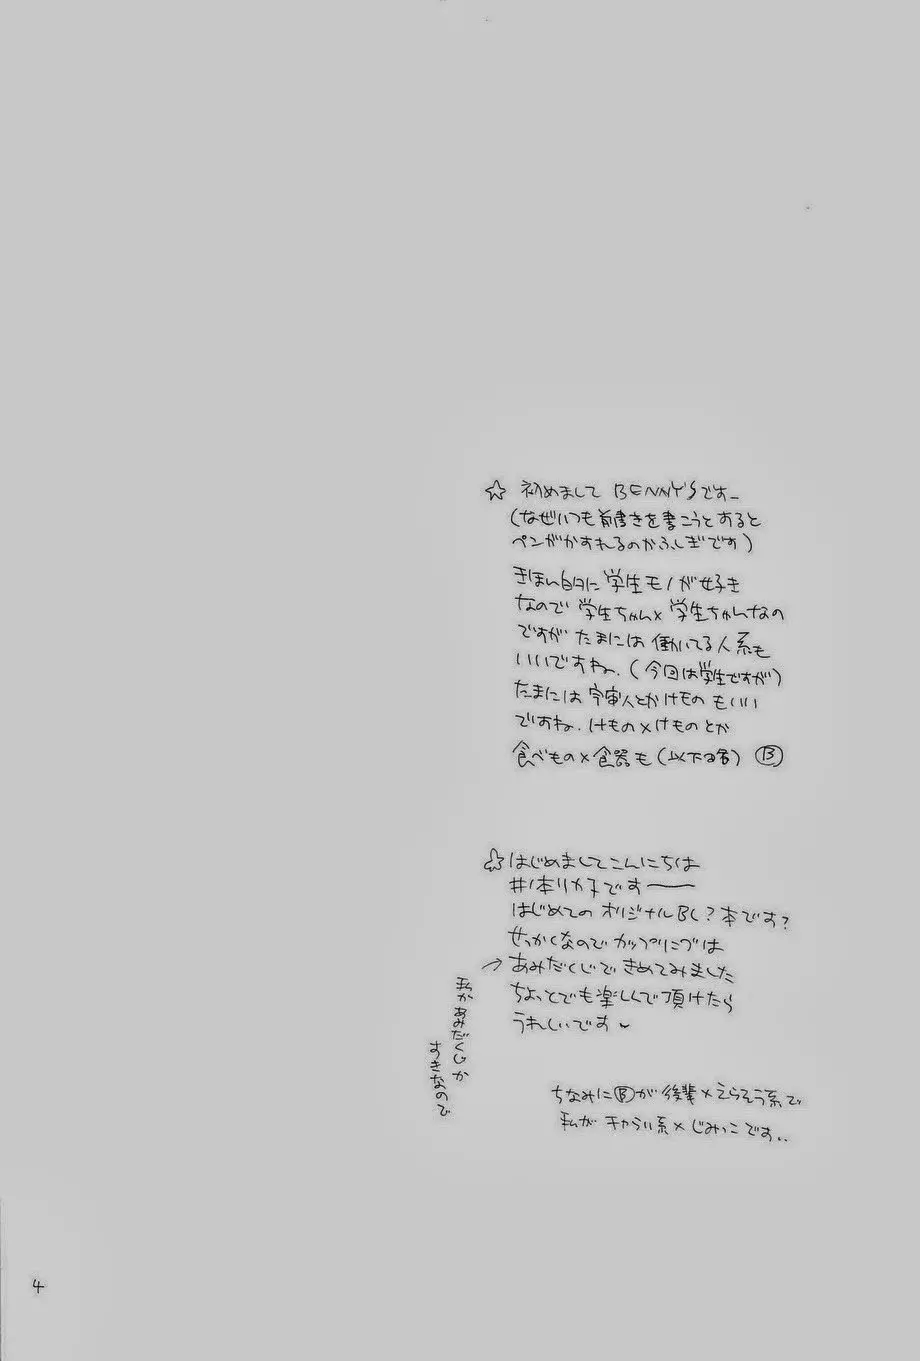 ☆ 初めまして BENNY'Sです_
(なぜいつも前書きを書こうとすると
ペンがかすれるのかふしぎです)
きほん的に 学生モノが好き
なので 学生ちゃん×学生ちゃんなの
ですが たまには 働いてる人系も
いいですね。(今回は学生ですが)
たまには 宇宙人とかけもの もいい
ですね。けもの×けものとか
食べもの×食器も(以下略) Ⓑ
☆はじめましてこんにちは
リカ子です——
はじめての オリジナルBL?本です?
せっかくなのでカップリングは
→あみだくじできめてみました
ちょっとでも楽しんで頂けたら
うれしいです
私があみだくじが
すきなので
ちなみにⒷが後輩×えらそう系で
私が チャらい系×じみっこです..
4